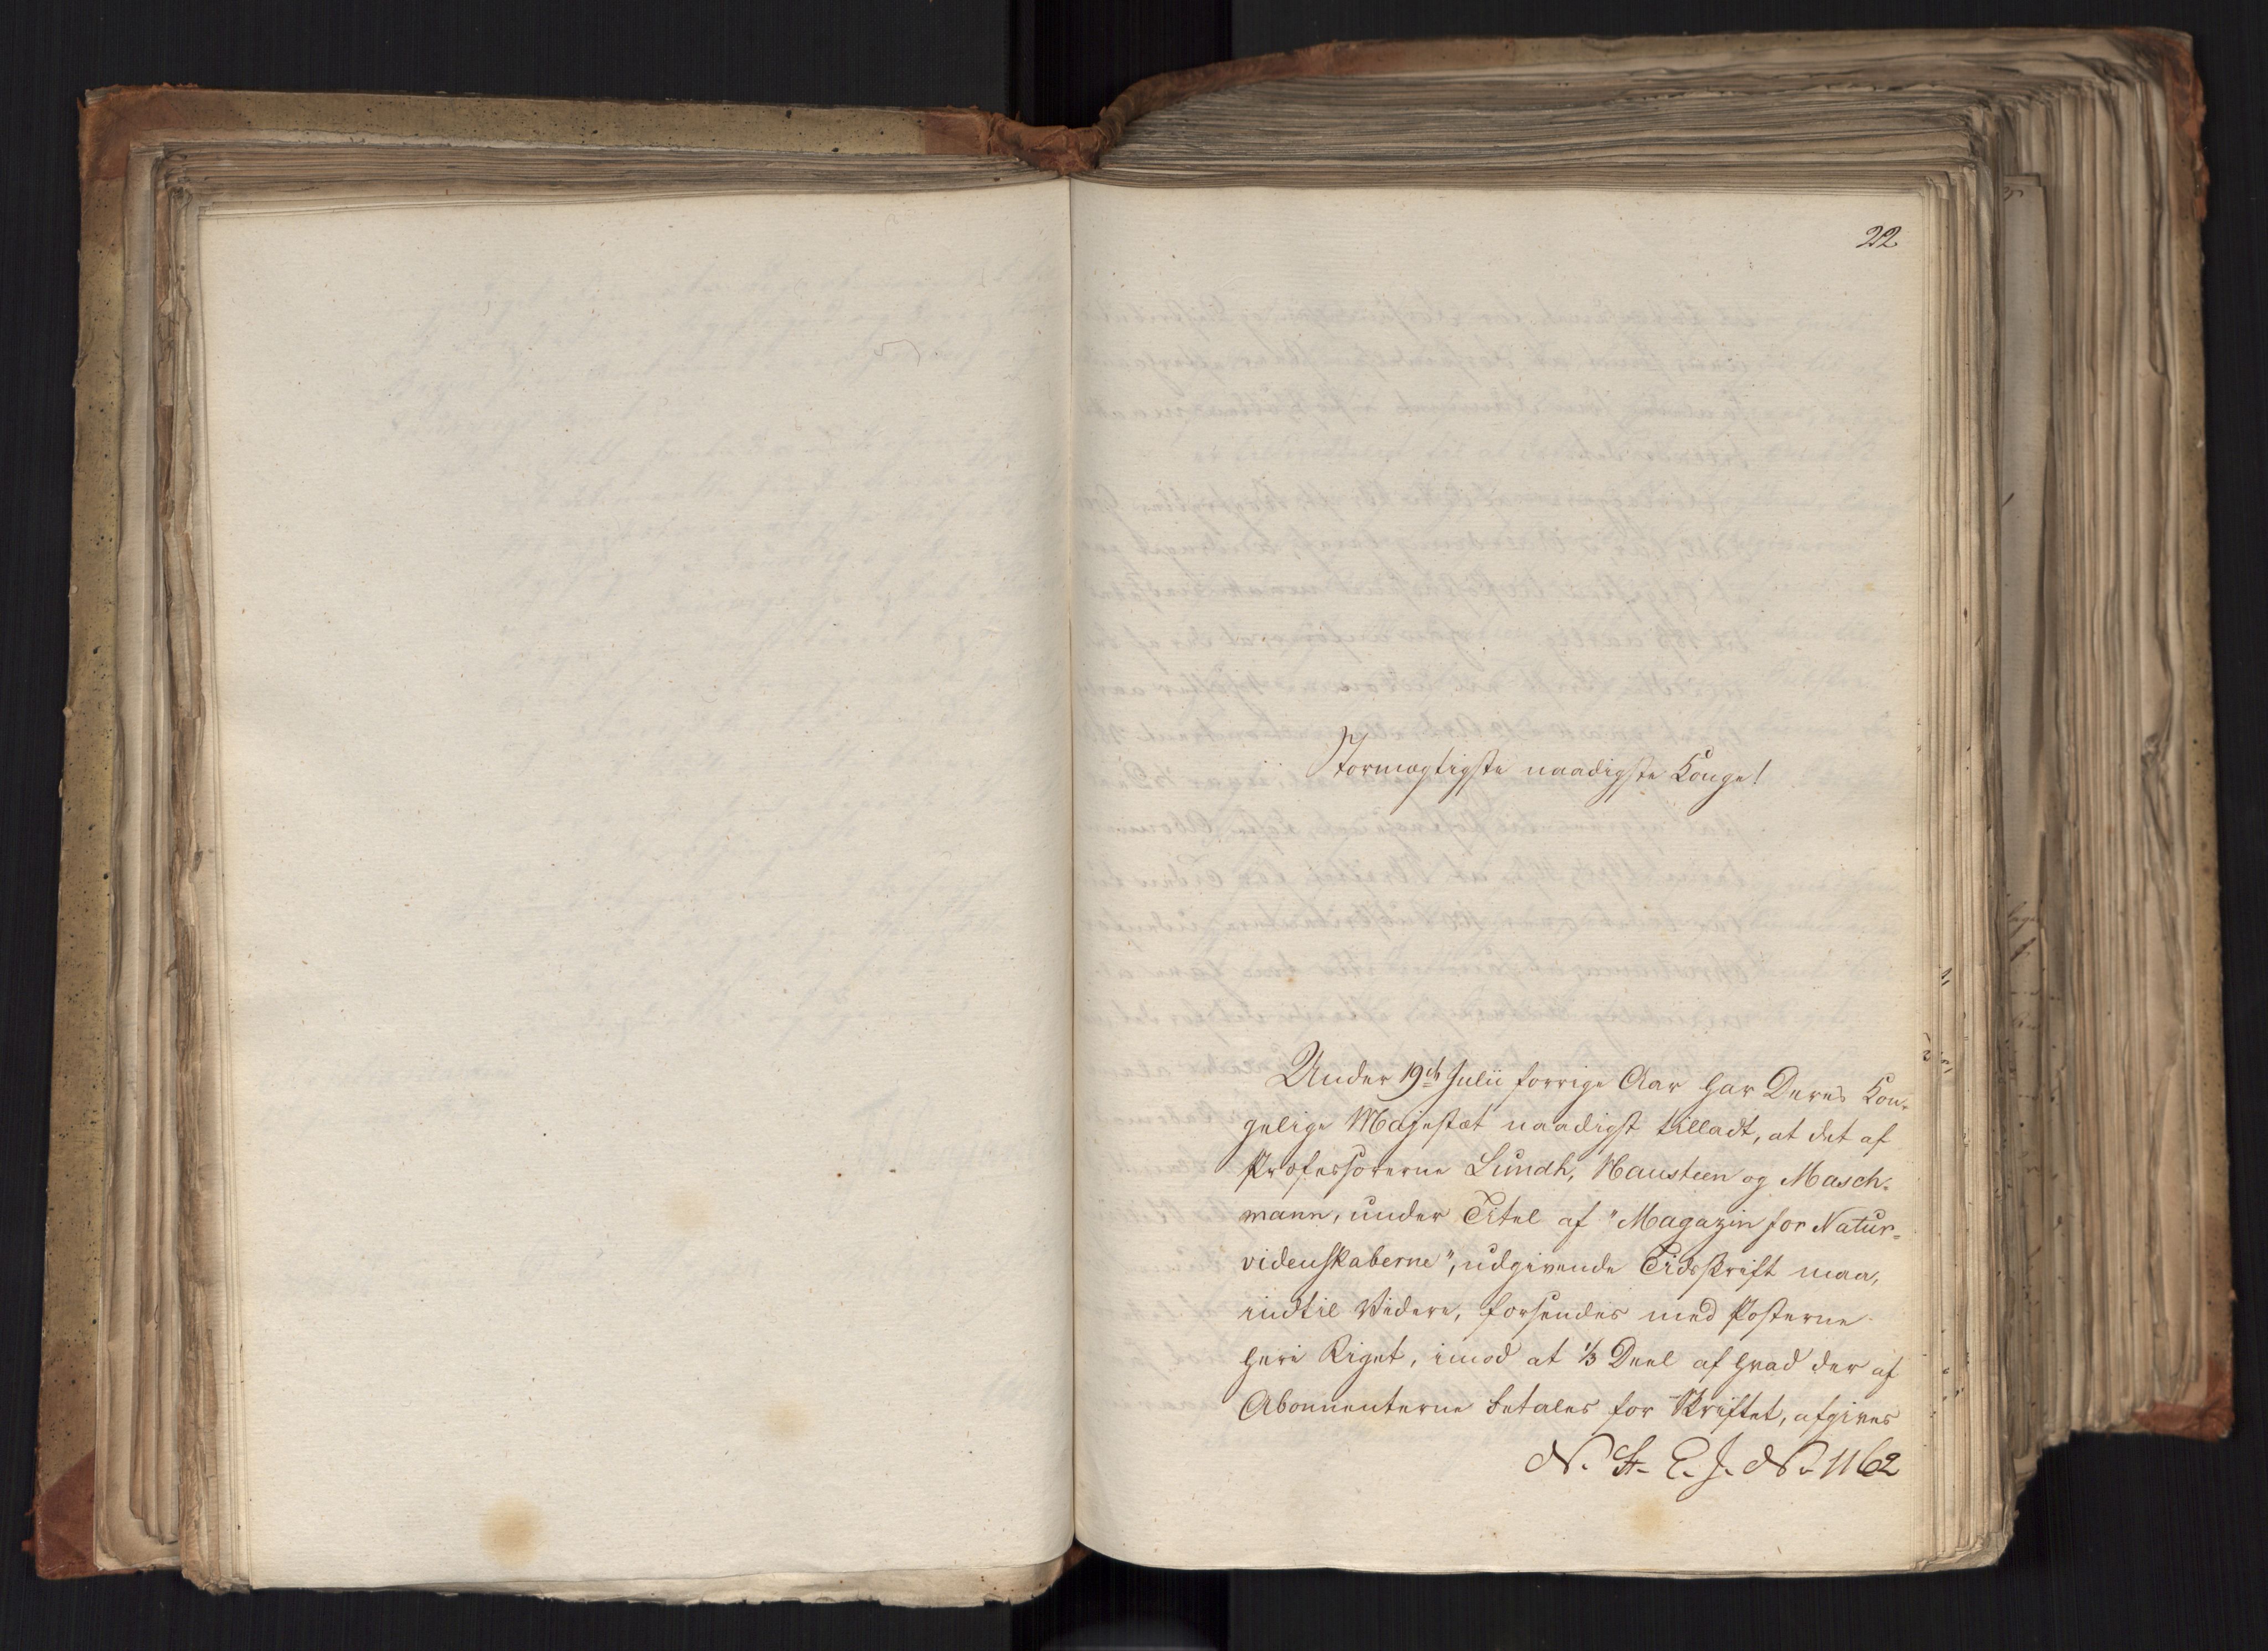 22
Stormægtigste naadigste Konge!
Under 19de Julii forrige Aar har Deres Kon-
gelige Majestæt naadigst tilladt, at det af
Professorerne Lundh, Hansteen og Masch-
mann, under Titel af "Magazin for Natur-
videnskaberne", udgivende Tidsskrift maa,
indtil Videre, forsendes med Posterne
heri Riget, imod at 1/3 Deel af hvad der af
Abonnenterne betales for Skriftet, afgives
N. St. E. J. No 1162